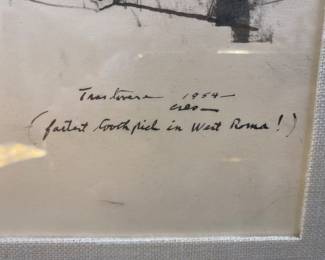 Trastevere 1954
(fastest toothpick in West Roma!)